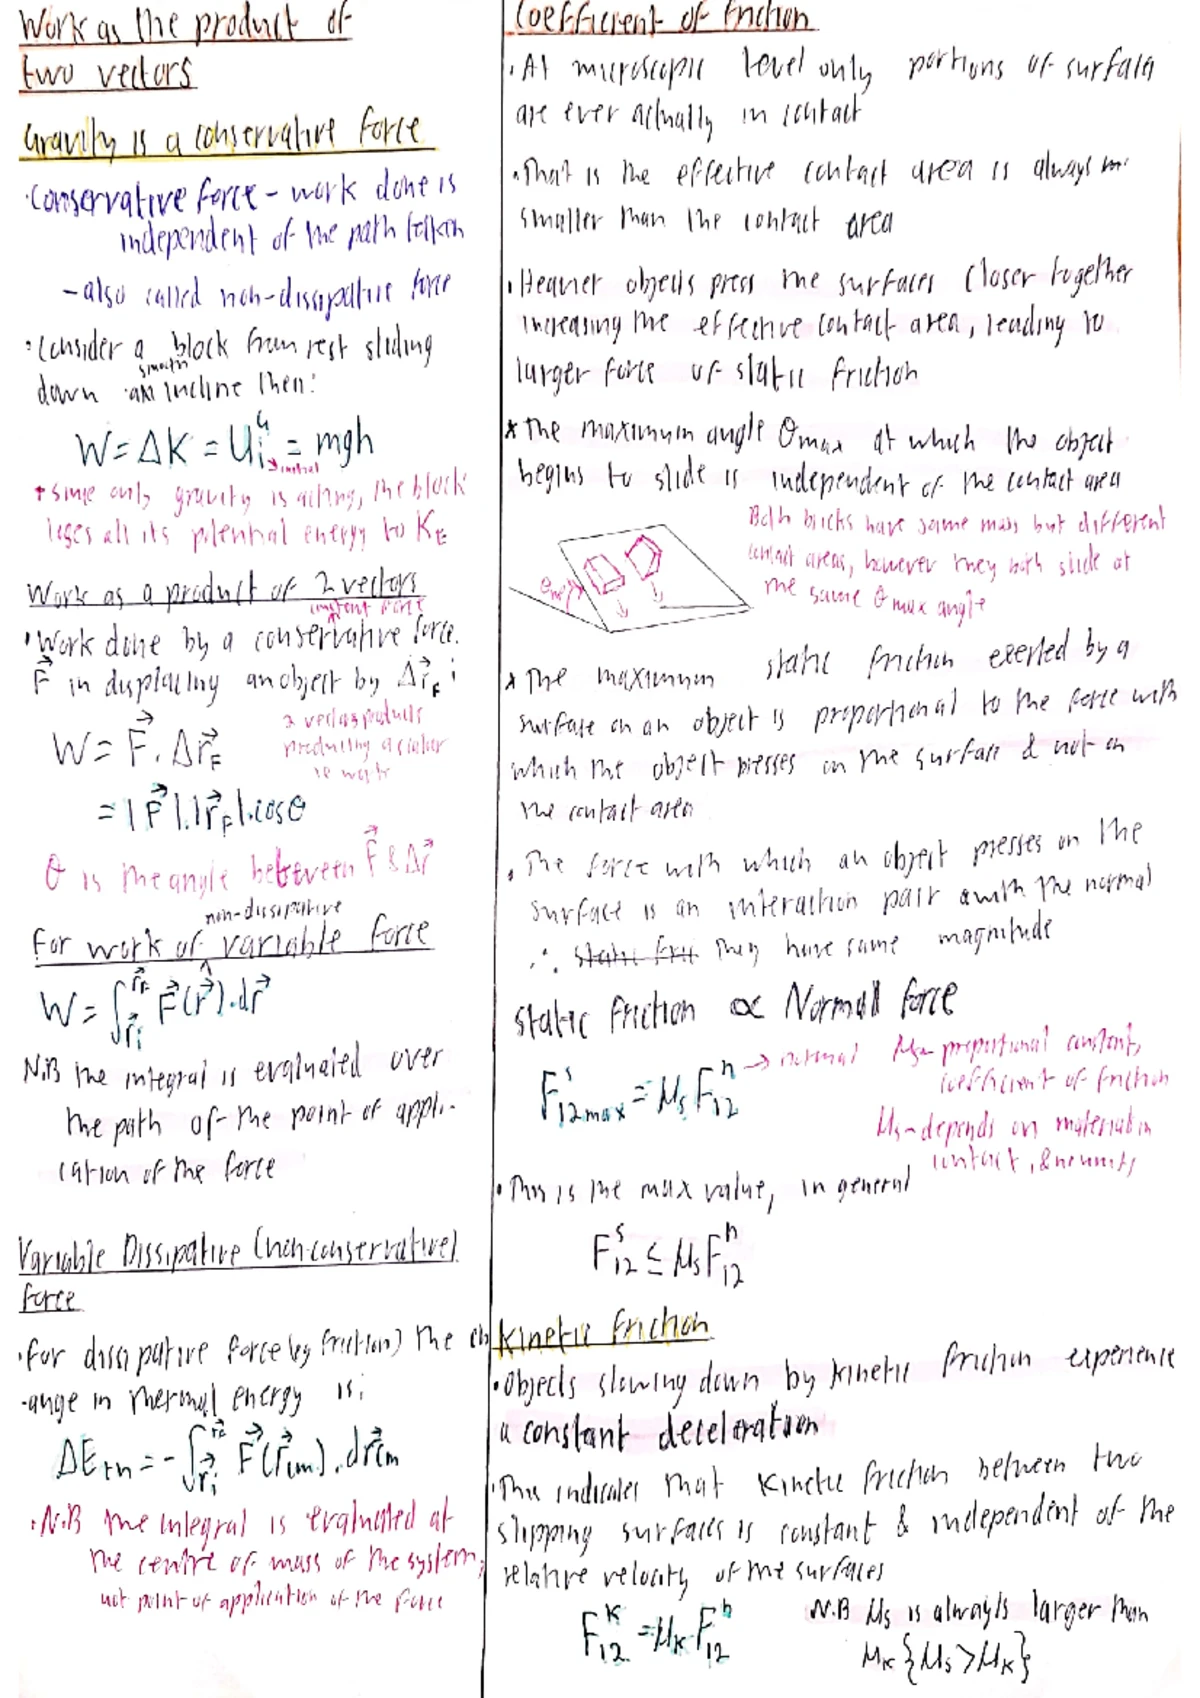 Work as the product of
two vectors
Gravity is a conservative force
·Conservative force - work done is
independent of the path taken
- also called non-dissipative force
·Consider a block from rest sliding
smooth
down an incline then:
W = ΔK = U^G_i = mgh
→ initial
* Since only gravity is acting, the block
loses all its potential energy to KE
Work as a product of 2 vectors
constant force
·Work done by a conservative force.
F⃗ in displacing an object by Δr⃗_F :
W = F⃗ . Δr⃗_F
2 vector products
producing a scalar
= |F⃗|.|r⃗_F|.cosθ
θ is the angle between F⃗ & Δr⃗
non-dissipative
For work of ^ variable force
W = ∫_{r⃗i}^{r⃗F} F⃗(r⃗).dr⃗
N.B the integral is evaluated over
the path of the point of appli-
cation of the force
Variable Dissipative (non-conservative)
force
·For dissipative force (eg friction) the ch
-ange in thermal energy is:
ΔE_th = - ∫_{r⃗i}^{r⃗F} F⃗(r⃗cm).dr⃗cm
·N.B the integral is evaluated at
the centre of mass of the system,
not point of application of the force
Coefficient of friction
·At microscopic level only portions of surface
are ever actually in contact
·That is the effective contact area is always
smaller than the contact area
·Heavier objects press the surfaces closer together
increasing the effective contact area, leading to
larger force of static friction
* The maximum angle θmax at which the object
begins to slide is independent of the contact area
Both bricks have same mass but different
contact areas, however they both slide at
the same θmax angle
θmax
* The maximum static friction exerted by a
surface on an object is proportional to the force with
which the object presses on the surface & not on
the contact area
·The force with which an object presses on the
surface is an interaction pair with the normal
∴ They have same magnitude
Static friction ∝ Normal force
F^s_12max = μs F^n_12 → normal
μs - proportional constant,
coefficient of friction
μs - depends on material in
contact,
·This is the max value, in general
F^s_12 ≤ μs F^n_12
Kinetic friction
·Objects slowing down by kinetic friction experience
a constant deceleration
·This indicates that kinetic friction between two
slipping surfaces is constant & independent of the
relative velocity of the surfaces
F^K_12 = μK F^n_12
N.B μs is always larger than
μK {μs > μK}